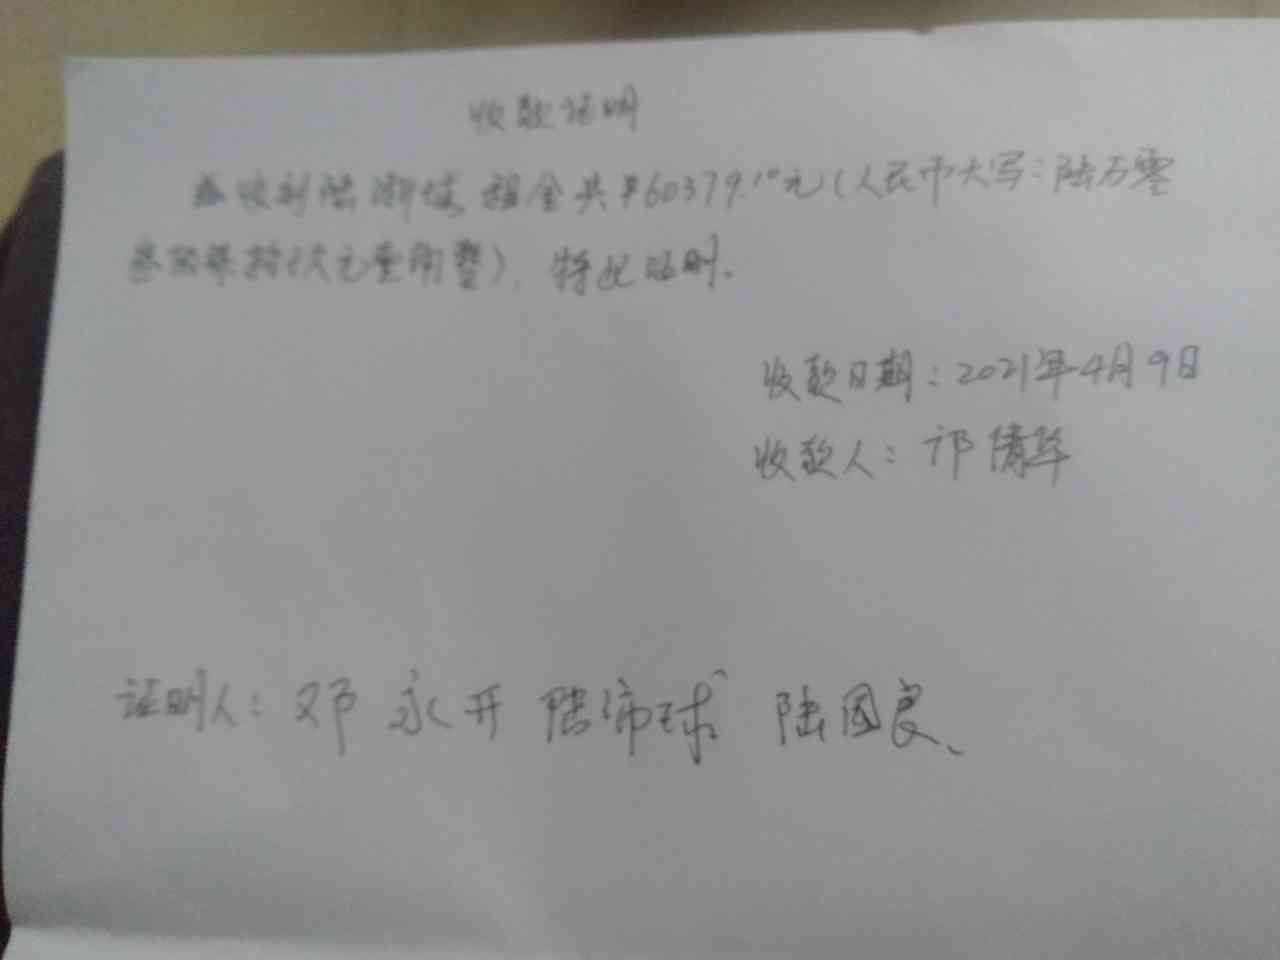 收款证明
兹收到陆 租金共¥60379.10元(人民币大写:陆万零
叁佰柒拾玖元壹角整),特此证明.
收款日期:2021年4月9日
收款人:邝倩华
证明人:邓永开 陆沛球 陆国良、